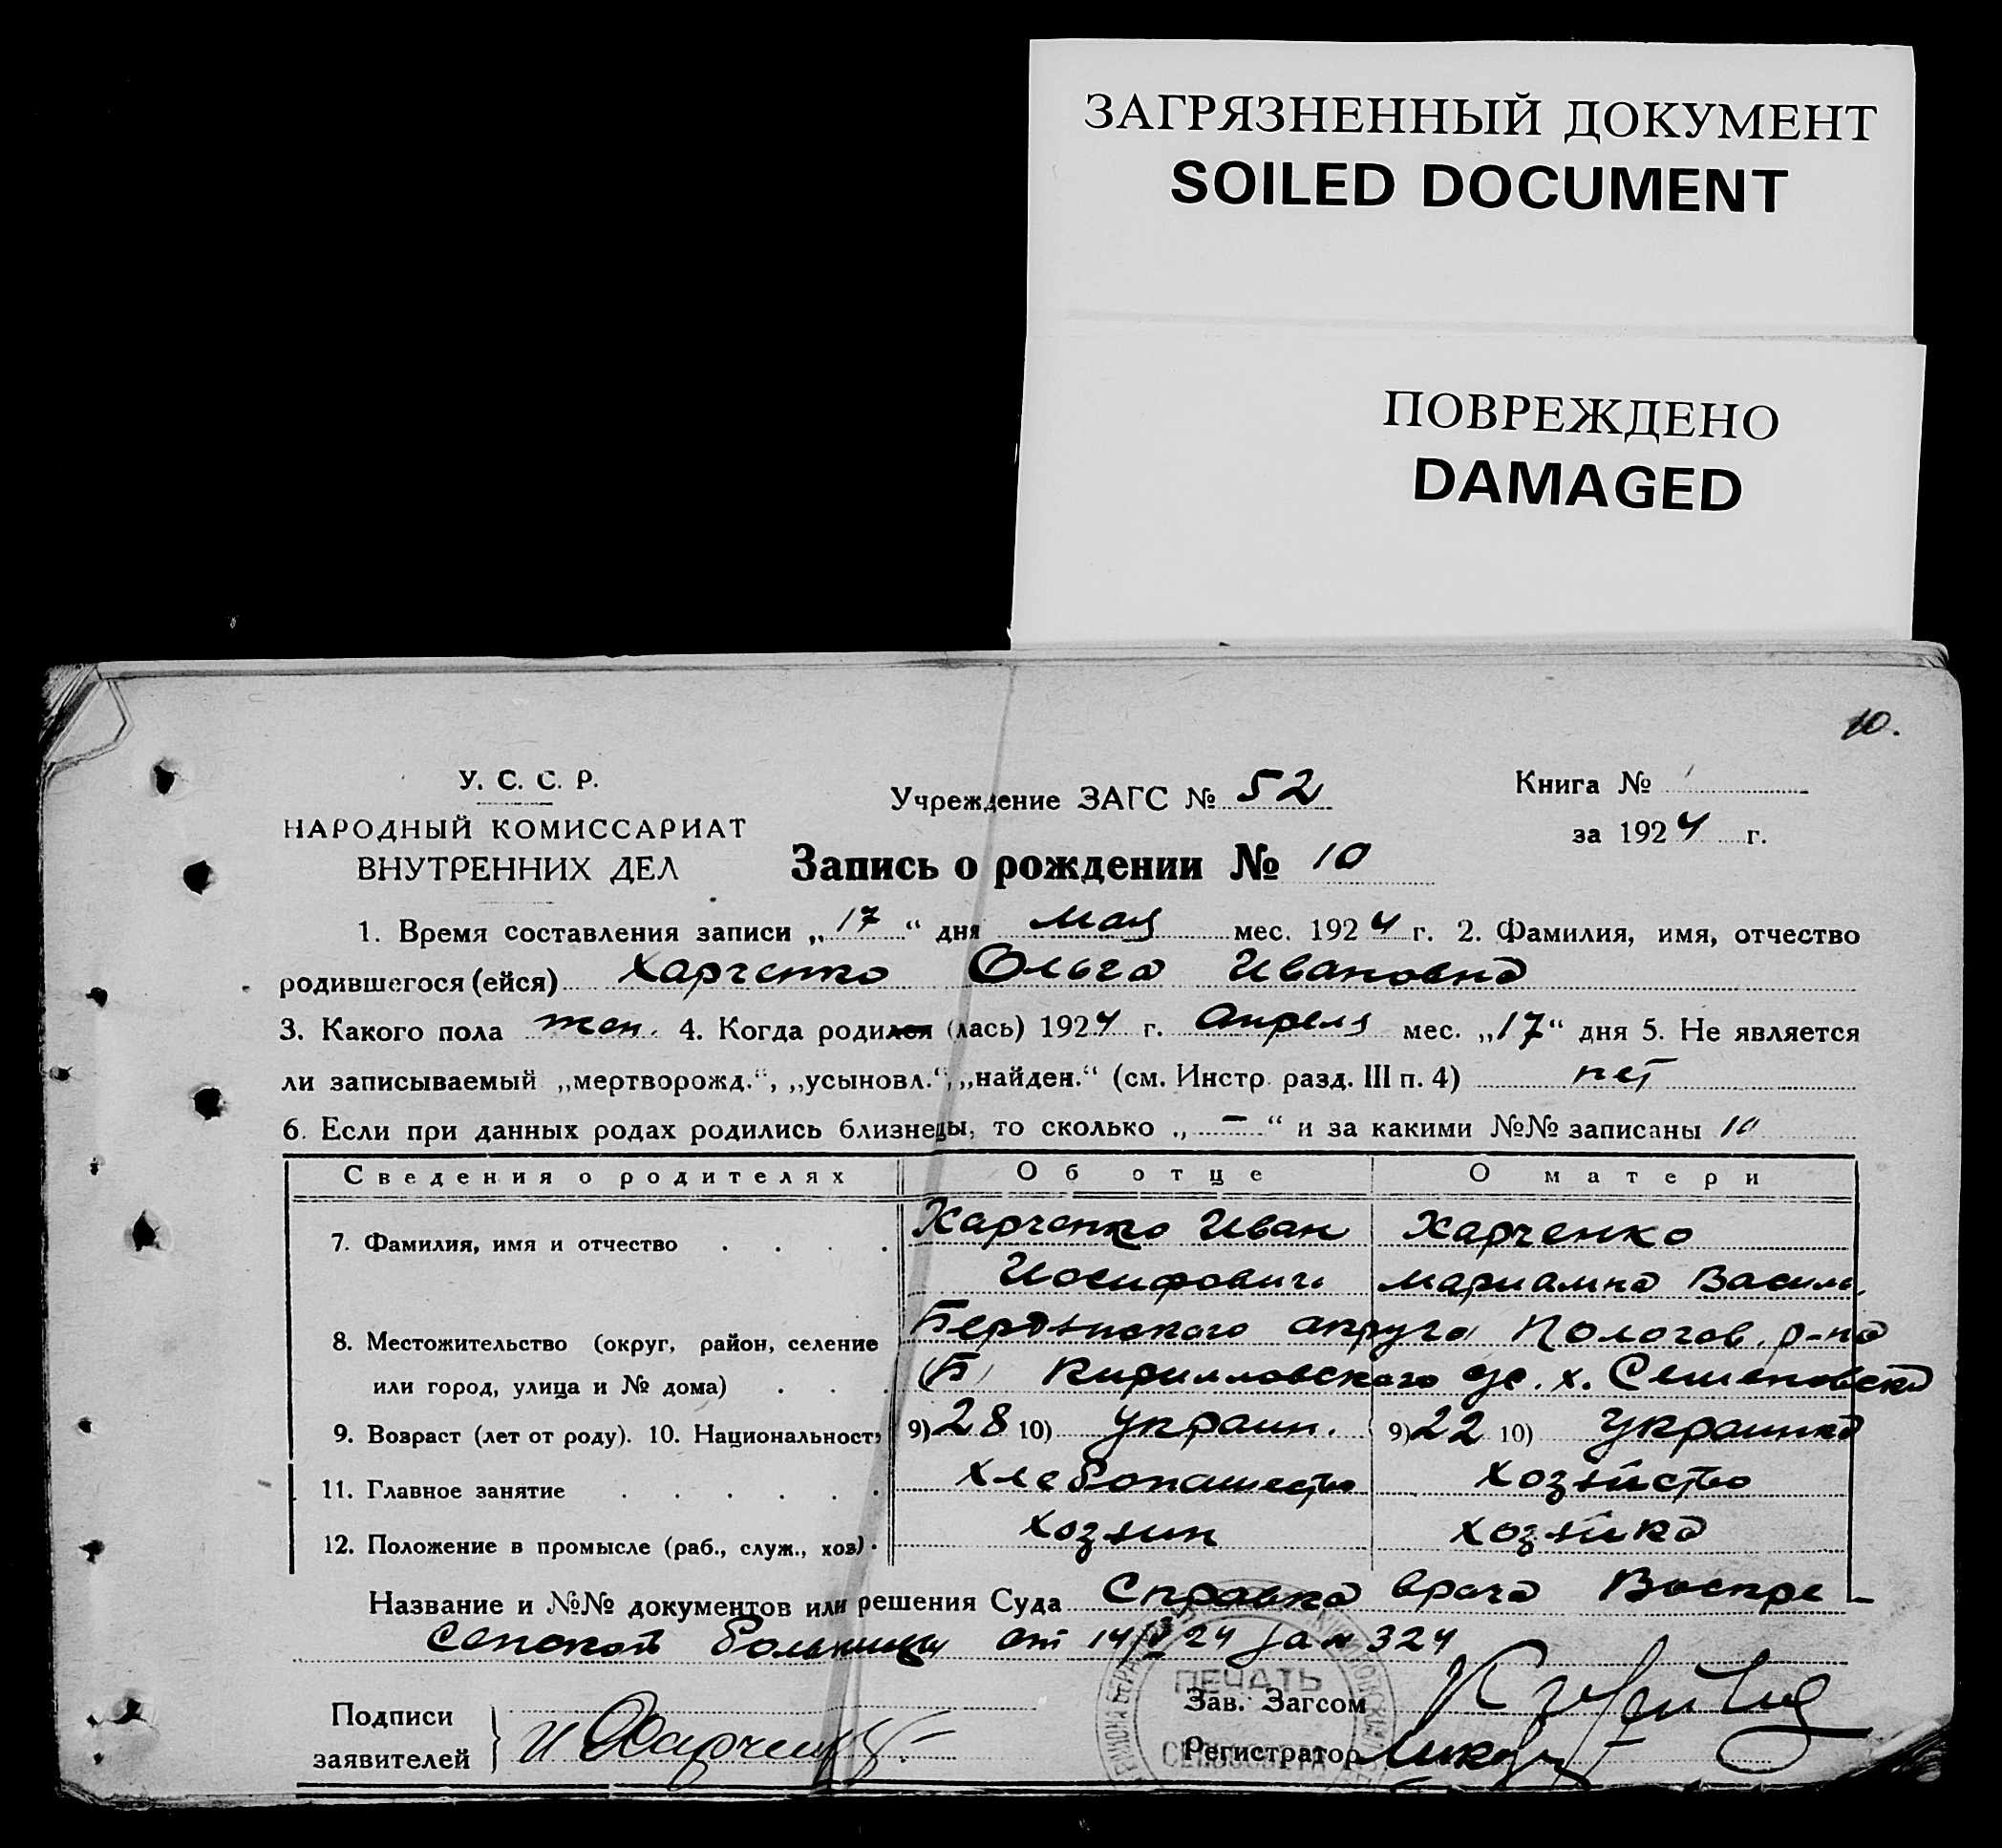 ЗАГРЯЗНЕННЫЙ ДОКУМЕНТ
SOILED DOCUMENT
ПОВРЕЖДЕНО
DAMAGED
10.
У. С. С. Р.
НАРОДНЫЙ КОМИССАРИАТ
ВНУТРЕННИХ ДЕЛ
Учреждение ЗАГС № 52
Книга №
за 1924 г.
Запись о рождении № 10
1. Время составления записи „17“ дня мая мес. 1924 г. 2. Фамилия, имя, отчество
родившегося (ейся) Харченко Ольга Ивановна
3. Какого пола жен. 4. Когда родился (лась) 1924 г. Апреля мес. „17“ дня 5. Не является
ли записываемый „мертворожд.“, „усыновл.“, „найден.“ (см. Инстр. разд. III п. 4) нет
6. Если при данных родах родились близнецы, то сколько „ — “ и за какими №№ записаны 10
Сведения о родителях Об отце О матери
7. Фамилия, имя и отчество . . . . Харченко Иван Харченко
Иосифович Мариамна Васил.
8. Местожительство (округ, район, селение Бердянского округа Пологов. р-на
или город, улица и № дома) . . . (Б) Кирилловского с/с. х. Семеновско
9. Возраст (лет от роду). 10. Национальность 9) 28 10) украин. 9) 22 10) украинка
11. Главное занятие . . . . . . хлебопашество хозяйство
12. Положение в промысле (раб., служ., хоз) . хозяин хозяйка
Название и №№ документов или решения Суда Справка врача Воскре
сенской больницы от 14/V 24 за № 324
ПЕЧАТЬ
Подписи
заявителей
И Харченко
Зав. Загсом
Регистратор